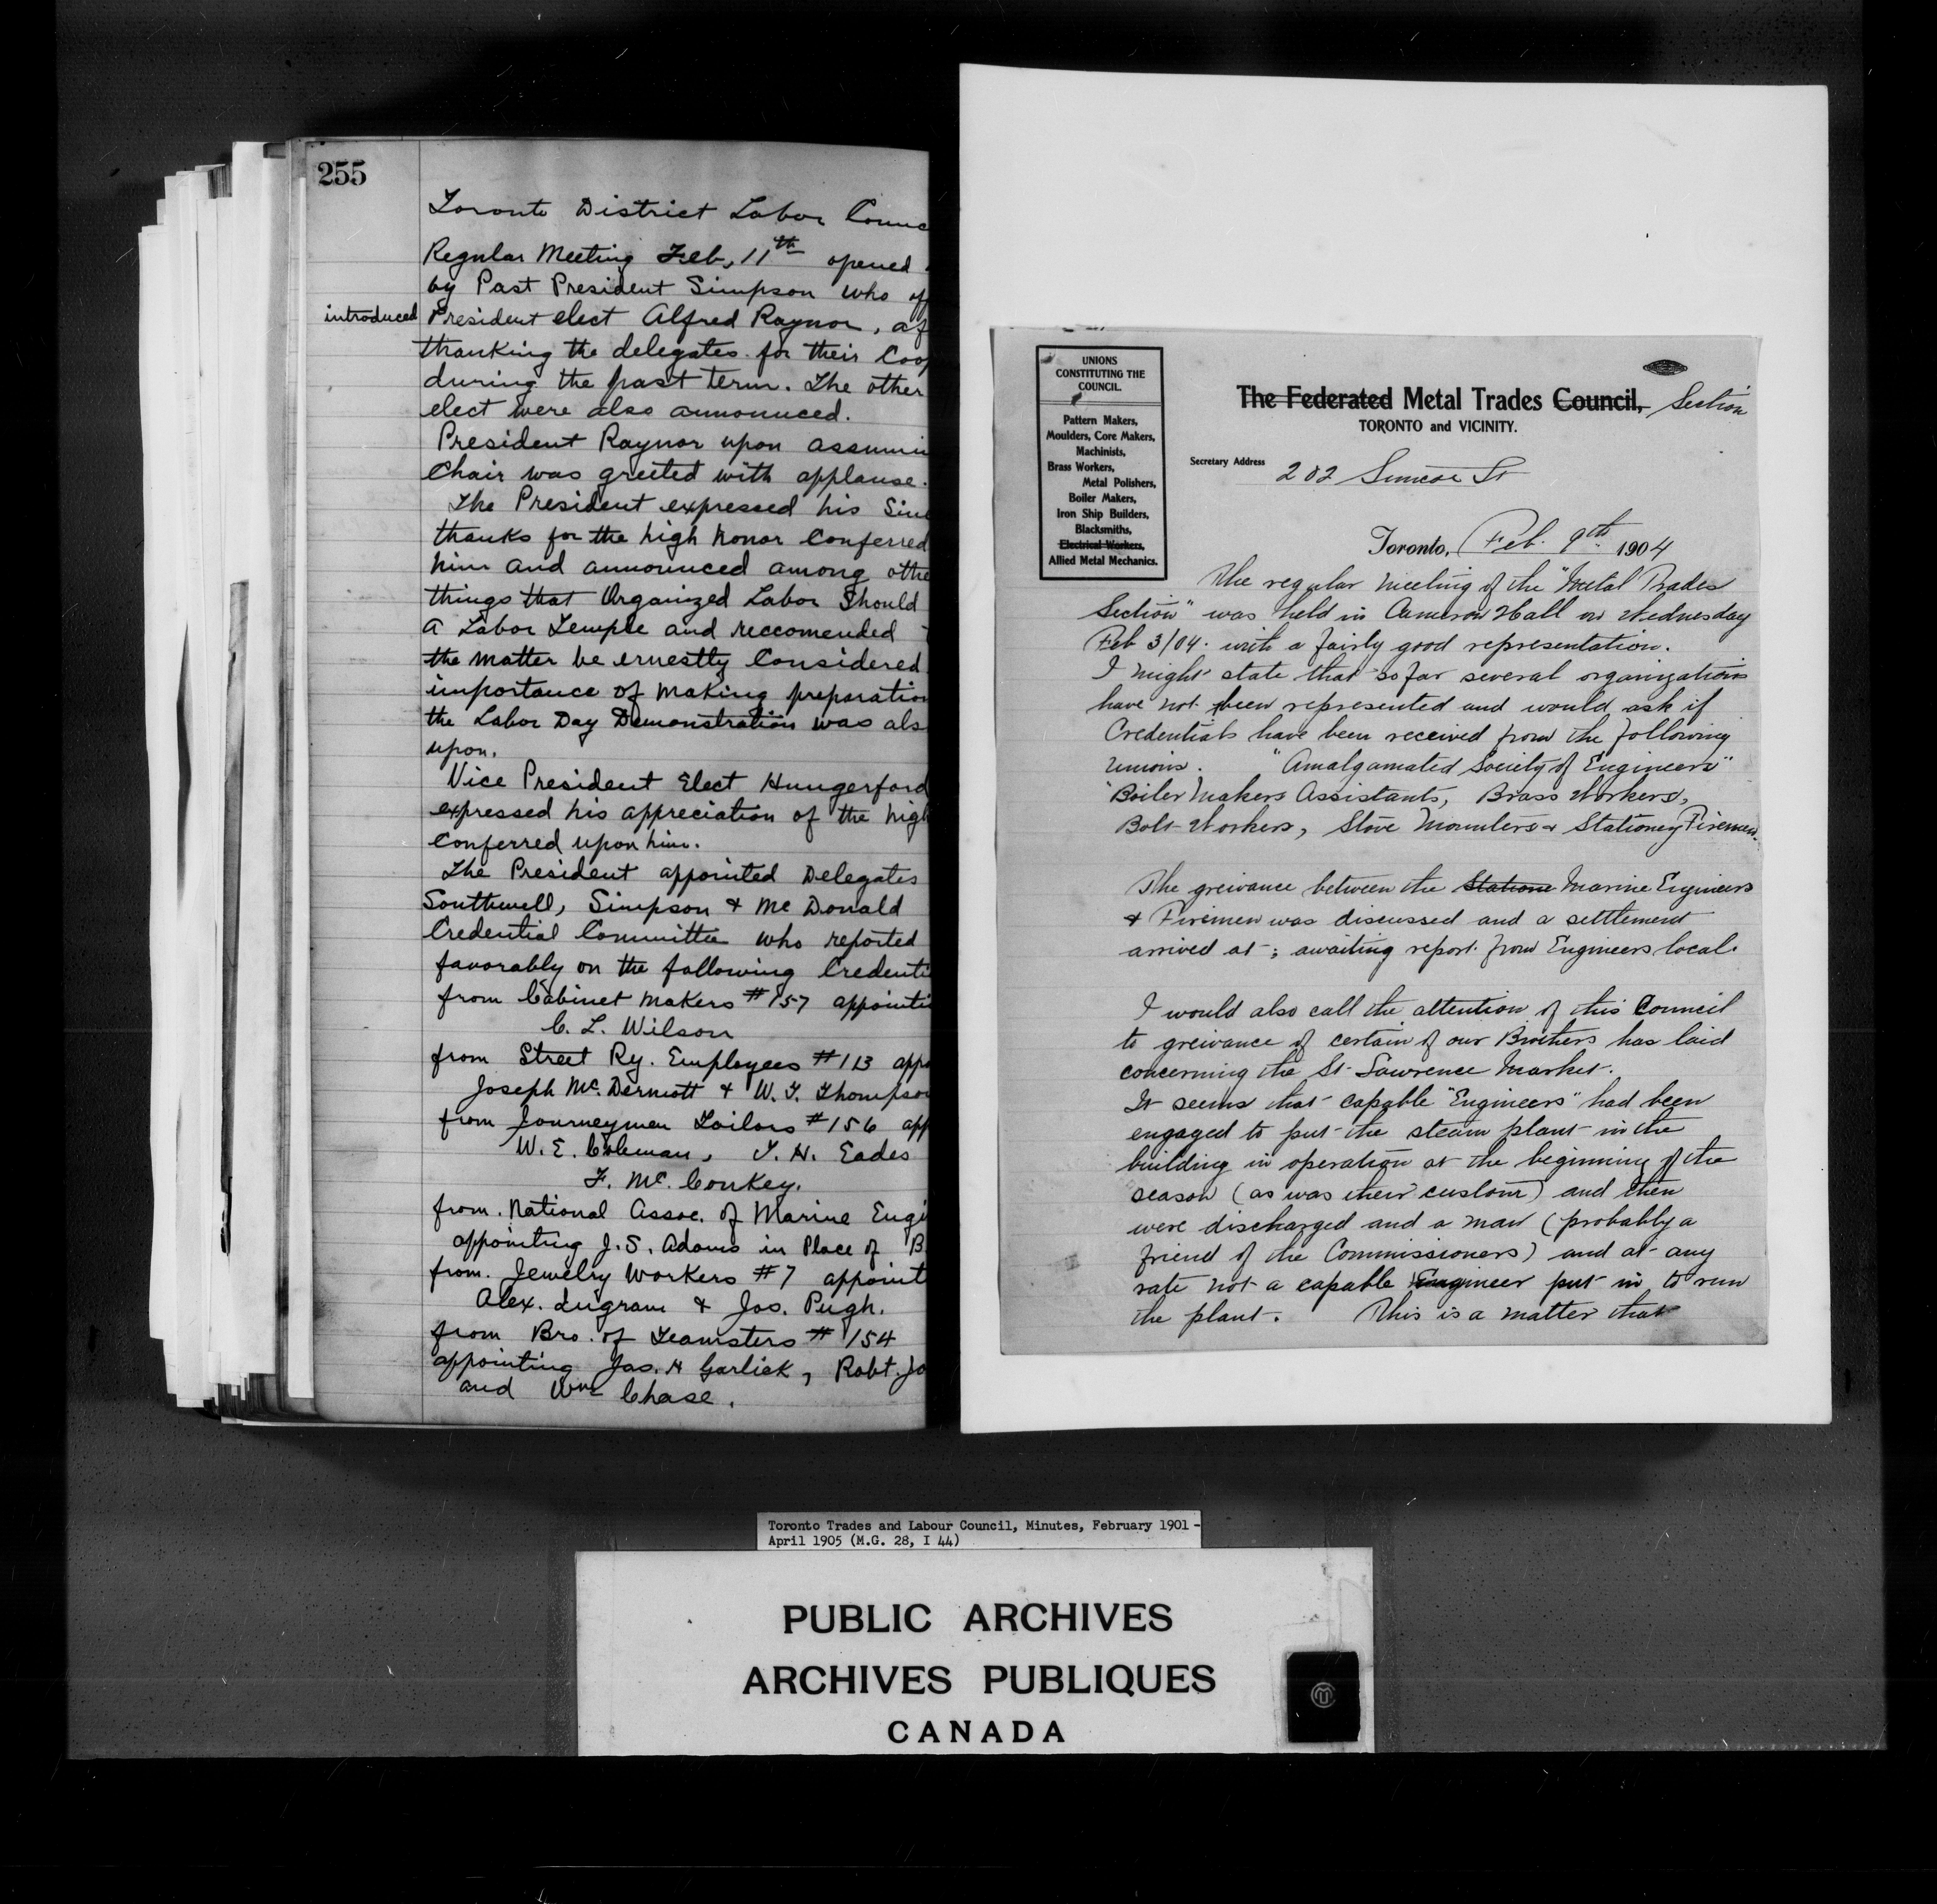 255
Toronto District Labor Counc
Regular Meeting Feb, 11th opened
by Past President Simpson who of
introduced President elect Alfred Raynor, af
thanking the delegates for their Coop
during the past term. The other
elect were also announced.
President Raynor upon assumin
Chair was greeted with applause.
The President expressed his Sinc
thanks for the high honor Conferred
him and announced among othe
things that Organized Labor Should
a Labor Temple and reccomended
the matter be ernestly Considered
importance of making preparation
the Labor Day Demonstration was als
upon.
Vice President Elect Hungerford
expressed his appreciation of the high
Conferred upon him.
The President appointed Delegates
Southwell, Simpson & McDonald
Credential Committee who reported
favorably on the following Credenti
from Cabinet Makers #157 appointi
C. L. Wilson
from Street Ry. Employees #113 appo
Joseph McDermott & W. T. Thompson
from Journeymen Tailors #156 app
W. E. Coleman, T. H. Eades
F. McConkey.
from. National Assoc. of Marine Engi
appointing J. S. Adams in Place of B
from. Jewelry Workers #7 appoint
Alex. Ingram & Jos. Pugh.
from Bro. of Teamsters #154
appointing Jas. H Garlick, Robt. Jo
and Wm Chase.
UNIONS
CONSTITUTING THE
COUNCIL.
Pattern Makers,
Moulders, Core Makers,
Machinists,
Brass Workers,
Metal Polishers,
Boiler Makers,
Iron Ship Builders,
Blacksmiths,
Electrical Workers,
Allied Metal Mechanics.
The Federated Metal Trades Council, Section
TORONTO and VICINITY.
Secretary Address 202 Simcoe St
Toronto, Feb. 9th 1904
The regular meeting of the "Metal Trades
Section" was held in Cameron Hall on Wednesday
Feb 3/04. with a fairly good representation.
I might state that so far several organizations
have not been represented and would ask if
Credentials have been received from the following
Unions. "Amalgamated Society of Engineers"
"Boiler Makers Assistants, Brass Workers,
Bolt Workers, Stove Mounters & Stationey Firemen.
The greivance between the Statione Marine Engineers
& Firemen was discussed and a settlement
arrived at; awaiting report from Engineers local.
I would also call the attention of this Council
to greivance of certain of our Brothers has laid
concerning the St. Lawrence Market.
It seems that capable "Engineers" had been
engaged to put the steam plant in the
building in operation at the beginning of the
season (as was their custom) and then
were discharged and a man (probably a
friend of the Commissioners) and at any
rate not a capable Engineer put in to run
the plant. This is a matter that
Toronto Trades and Labour Council, Minutes, February 1901 -
April 1905 (M.G. 28, I 44)
PUBLIC ARCHIVES
ARCHIVES PUBLIQUES
CANADA